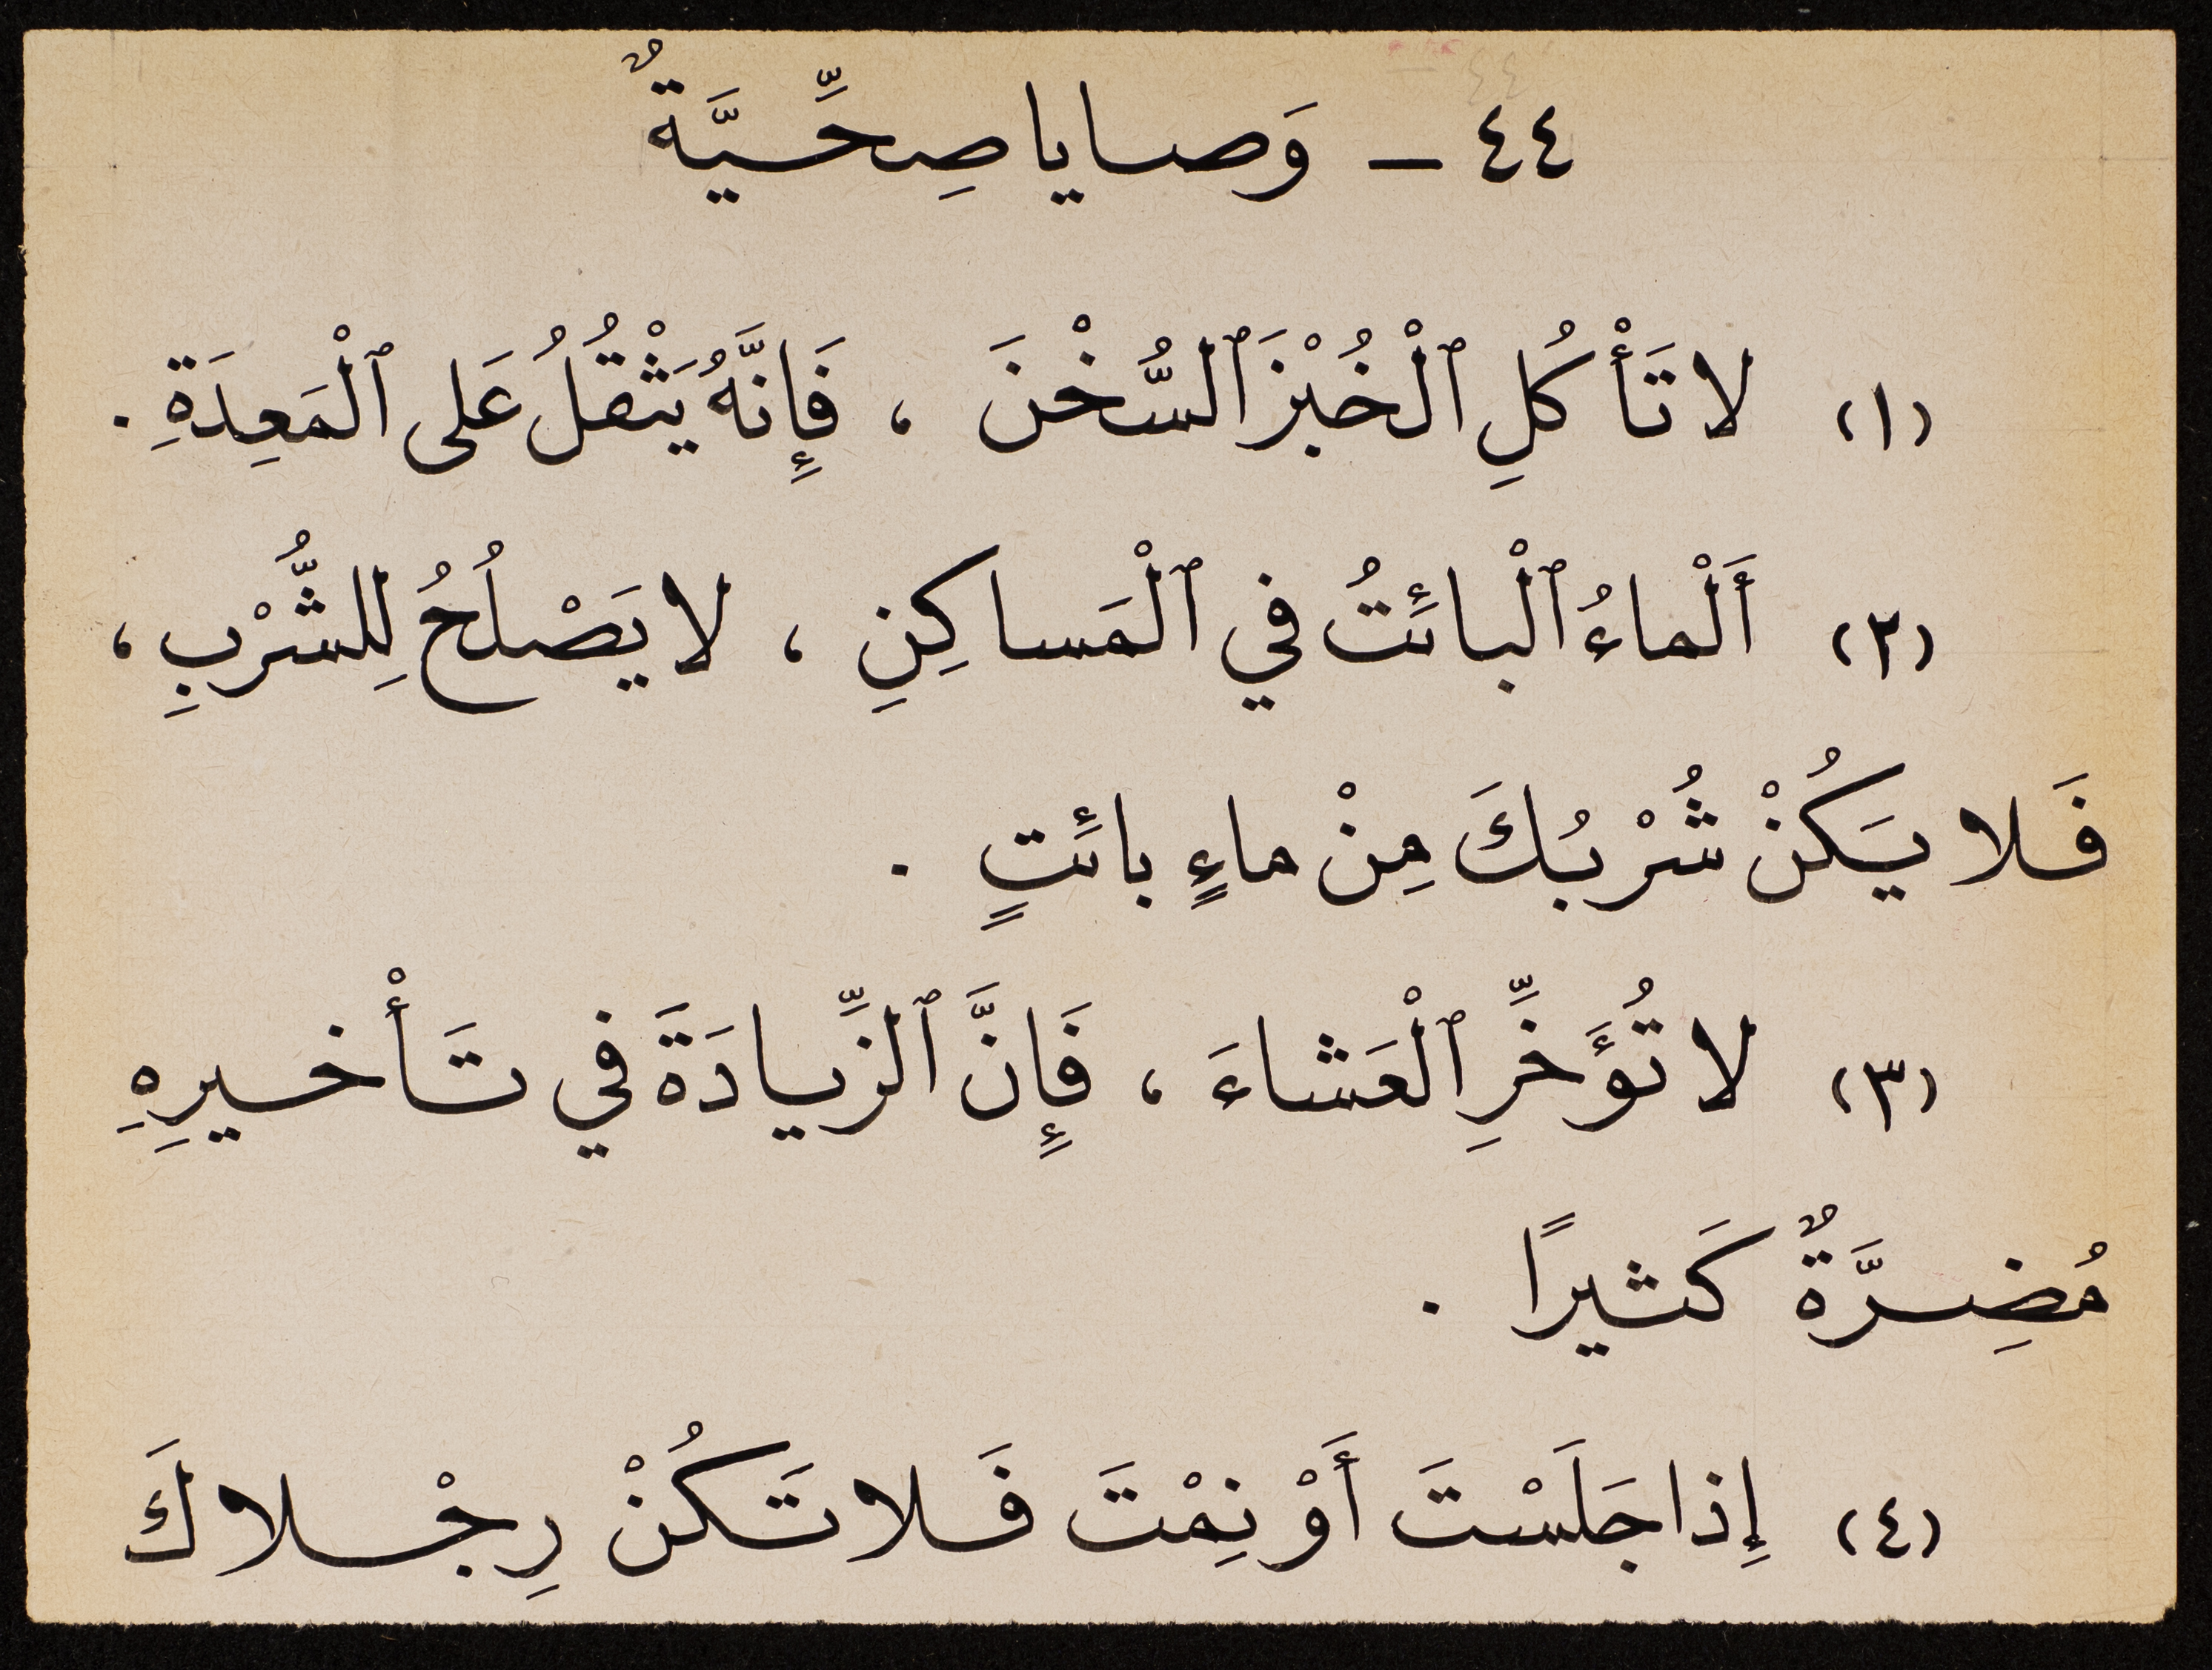 ٤٤ – وَصايا صِحِّيَّةٌ
(١) لا تَأْكُلِ ٱلْخُبْزَ ٱلسُّخْنَ ، فَإِنَّهُ يَثْقُلُ عَلى ٱلْمَعِدَةِ .
(٢) أَلْماءُ ٱلْبائَتُ في ٱلْمَساكِنِ ، لا يَصْلُحُ لِلشُّرْبِ ،
فَلا يَكُنْ شُرْبُكَ مِنْ ماءٍ بائَتٍ .
(٣) لا تُؤَخِّرِ ٱلْعَشاءَ ، فَإِنَّ ٱلزِّيادَةَ في تَأْخيرِهِ
مُضِرَّةٌ كَثيرًا .
(٤) إِذا جَلَسْتَ أَوْ نِمْتَ فَلا تَكُنْ رِجْلاكَ